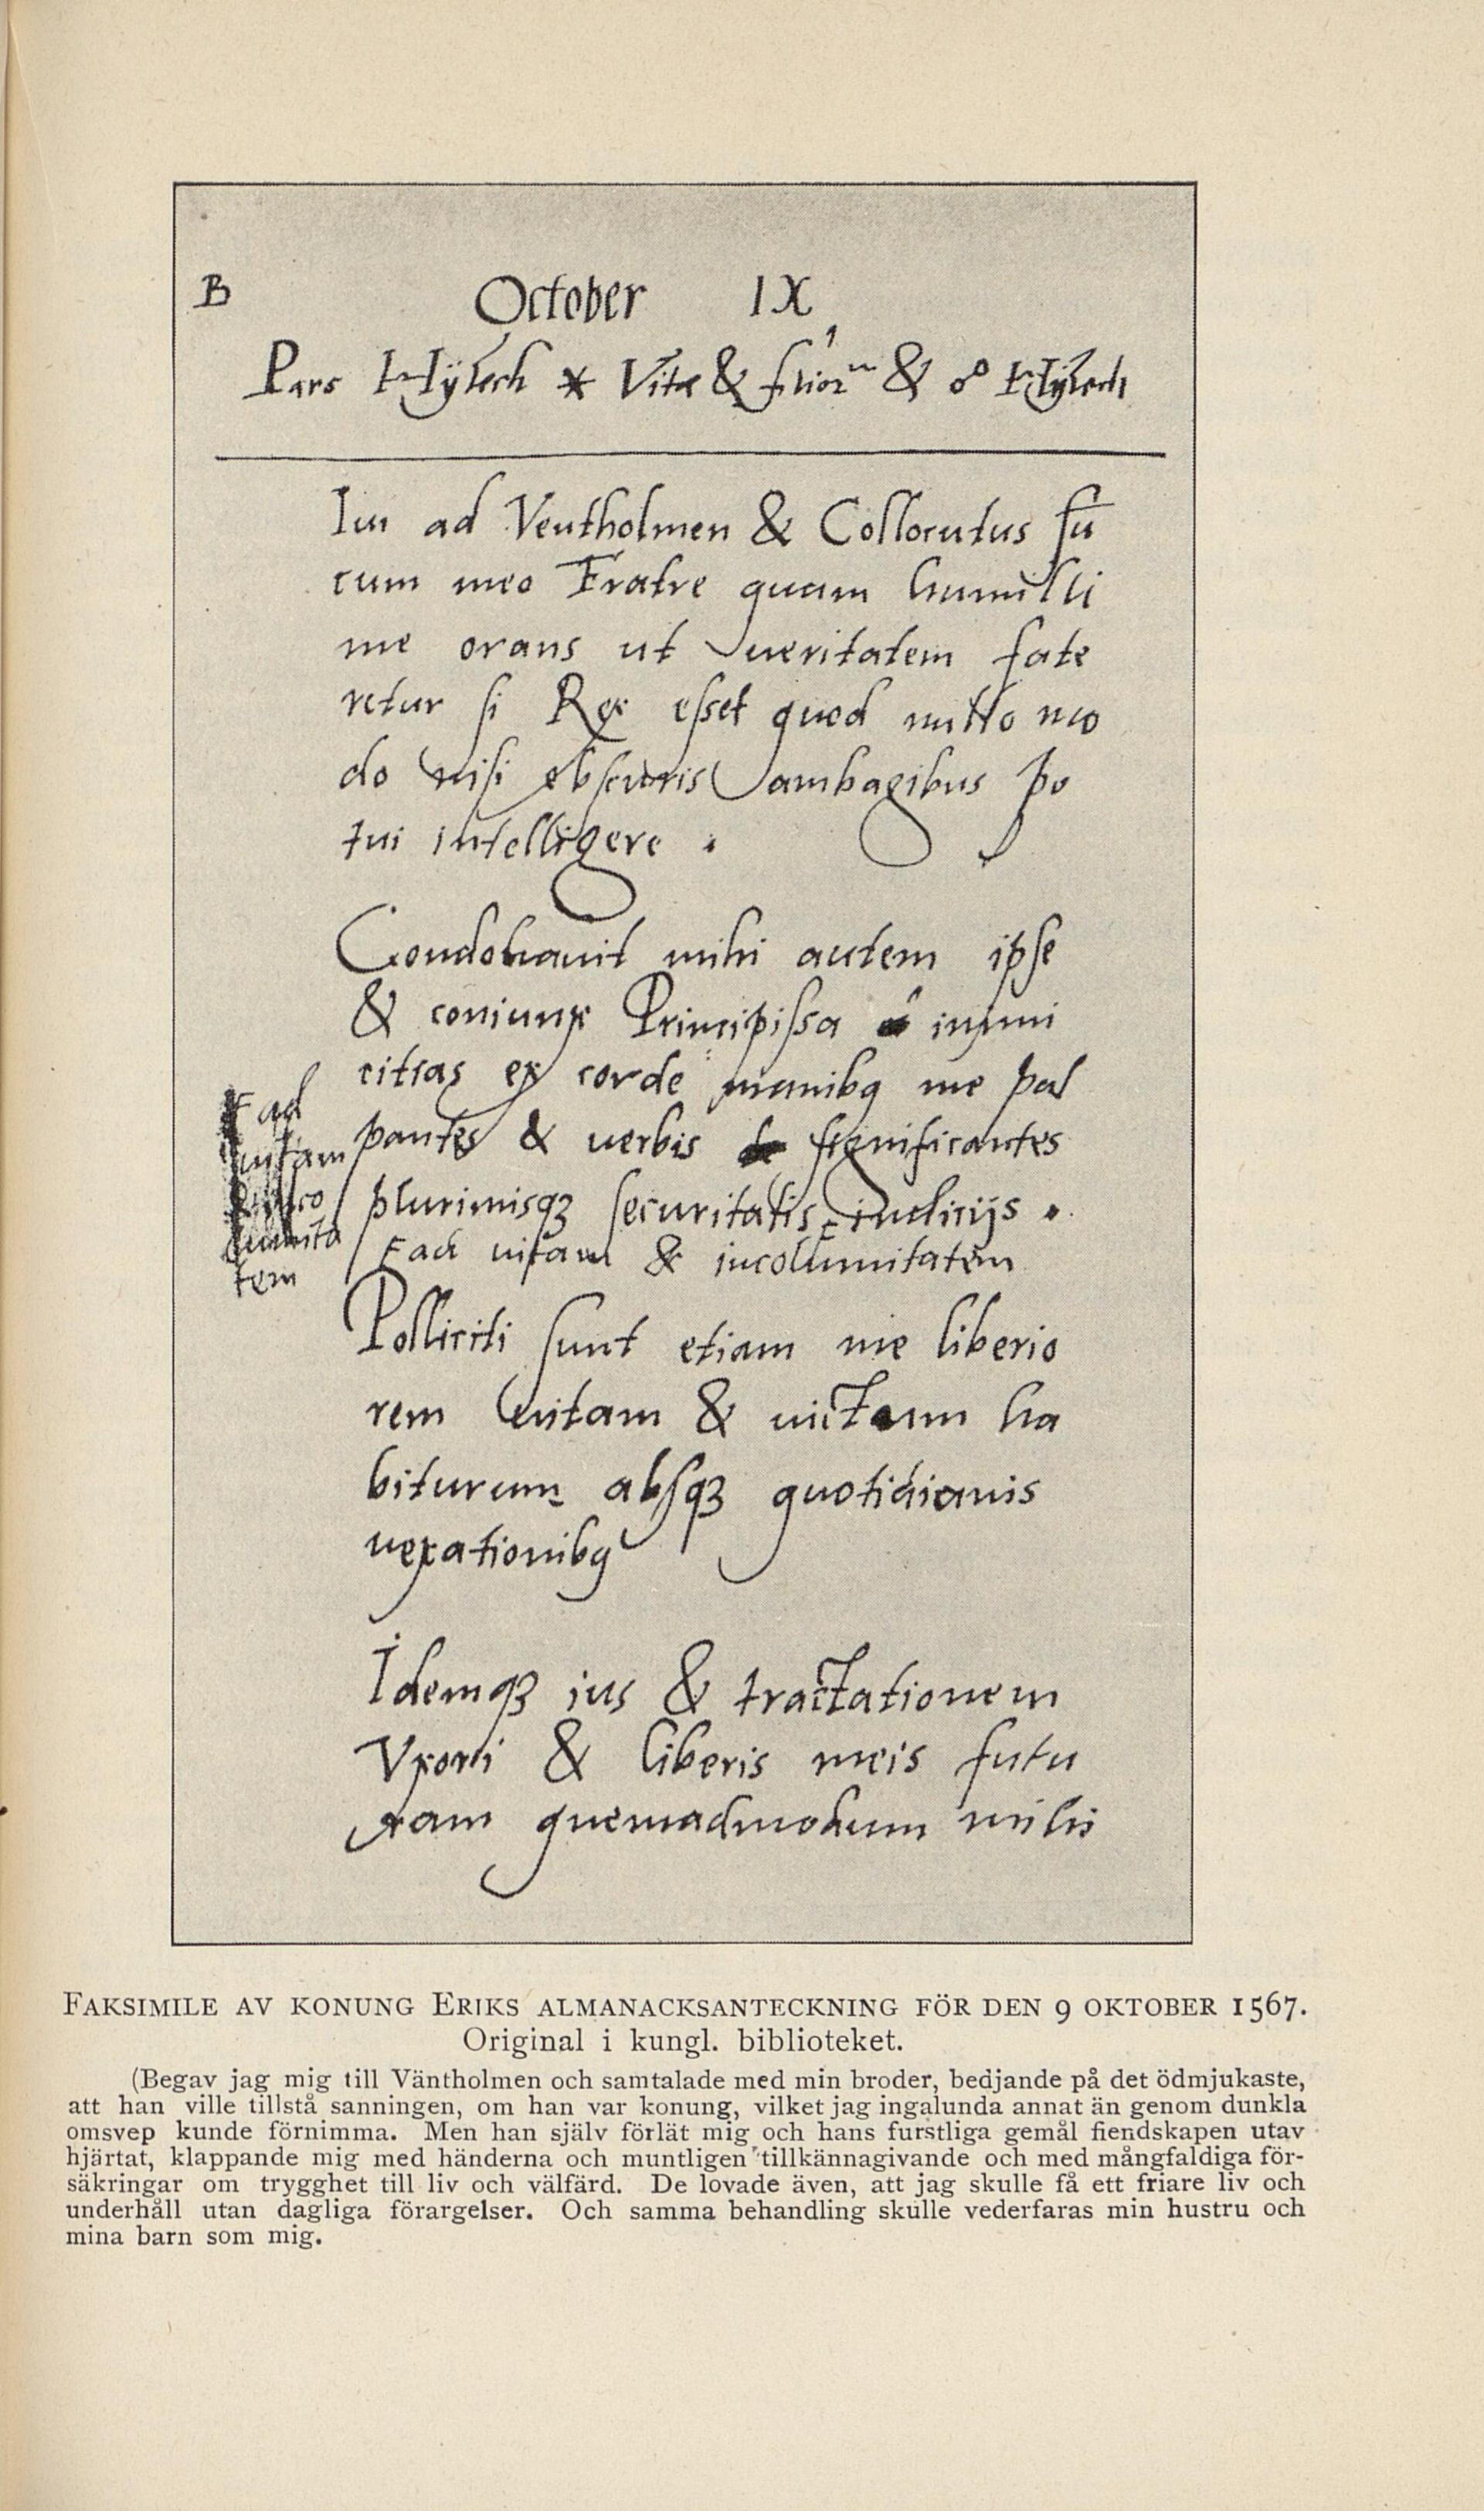 B October IX
Pars Hÿlech * Vitæ & filior & ☍ Hÿlech
Iui ad Ventholmen & Collocutus fū
cum meo Fratre quam humilli
me orans ut ueritatem fate
retur si Rex esset quod nullo mo
do nisi obscuris ambagibus po
tui intelligere .
Condonauit mihi autem ipse
& coniunx Principissa inimi
citias ex corde manibq me pal
pantes & uerbis significantes
plurimisqꝫ securitatis indicijs .
ad uitam & incolumitatem
ad
uitam
& inco
lumita
tem
Polliciti sunt etiam me liberio
rem uitam & uictum ha
biturum absqꝫ quotidianis
uexationibq
Idemqꝫ ius & tractationem
Vxori & liberis meis futu
ram quemadmodum mihi
FAKSIMILE AV KONUNG ERIKS ALMANACKSANTECKNING FÖR DEN 9 OKTOBER 1567.
Original i kungl. biblioteket.
(Begav jag mig till Väntholmen och samtalade med min broder, bedjande på det ödmjukaste,
att han ville tillstå sanningen, om han var konung, vilket jag ingalunda annat än genom dunkla
omsvep kunde förnimma. Men han själv förlät mig och hans furstliga gemål fiendskapen utav
hjärtat, klappande mig med händerna och muntligen tillkännagivande och med mångfaldiga för-
säkringar om trygghet till liv och välfärd. De lovade även, att jag skulle få ett friare liv och
underhåll utan dagliga förargelser. Och samma behandling skulle vederfaras min hustru och
mina barn som mig.